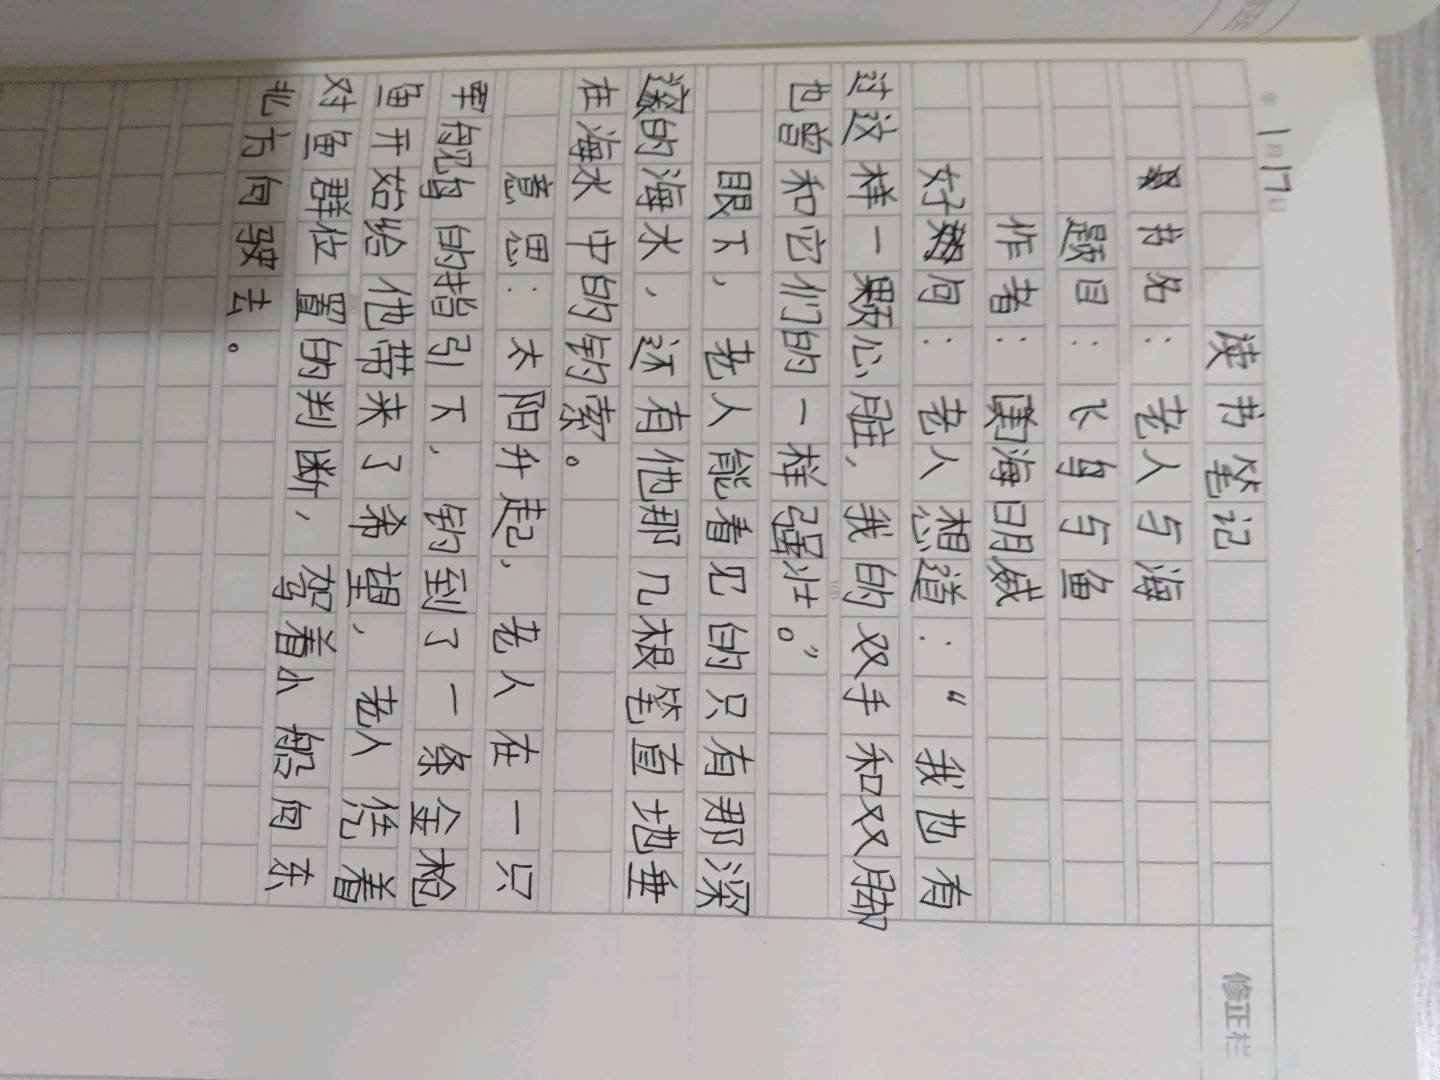 1月17日
读书笔记
书名：老人与海
题目：飞鸟与鱼
作者：海明威
好句：老人想道：“我也有
过这样一颗心脏，我的双手和双脚
也曾和它们的一样强壮。”
眼下，老人能看见的只有那深
深的海水，还有他那几根笔直地垂
在海水中的钓索。
意思：太阳升起，老人在一只
军舰鸟的指引下，钓到了一条金枪
鱼开始给他带来了希望，老人凭着
对鱼群位置的判断，驾着小船向东
北方向驶去。
修正栏